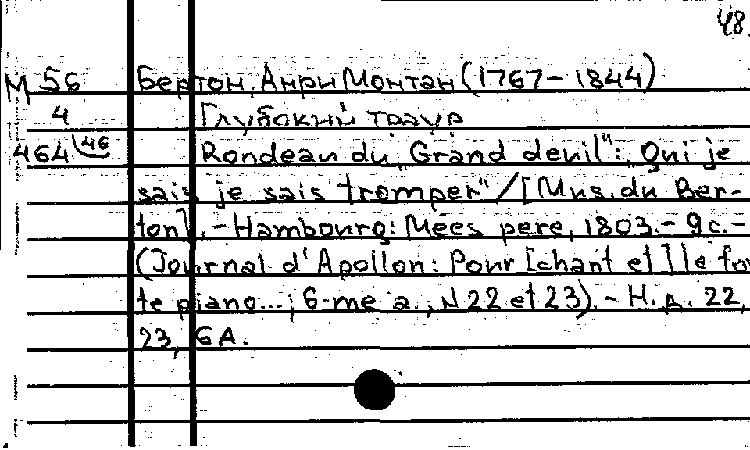 48.
М 56 Бертон, Анри Монтан (1767-1844)
4 Глубокий траур
464 46 Rondeau du "Grand deuil": "Oui je
sais, je sais tromper" / [Mus. du Ber-
ton]. - Hambourg: Mees pere, 1803. - 9c. -
(Journal d'Apollon: Pour [chant et] le for
te piano...; 6-me a., N 22 et 23). - Н. д. 22,
23, 6A.